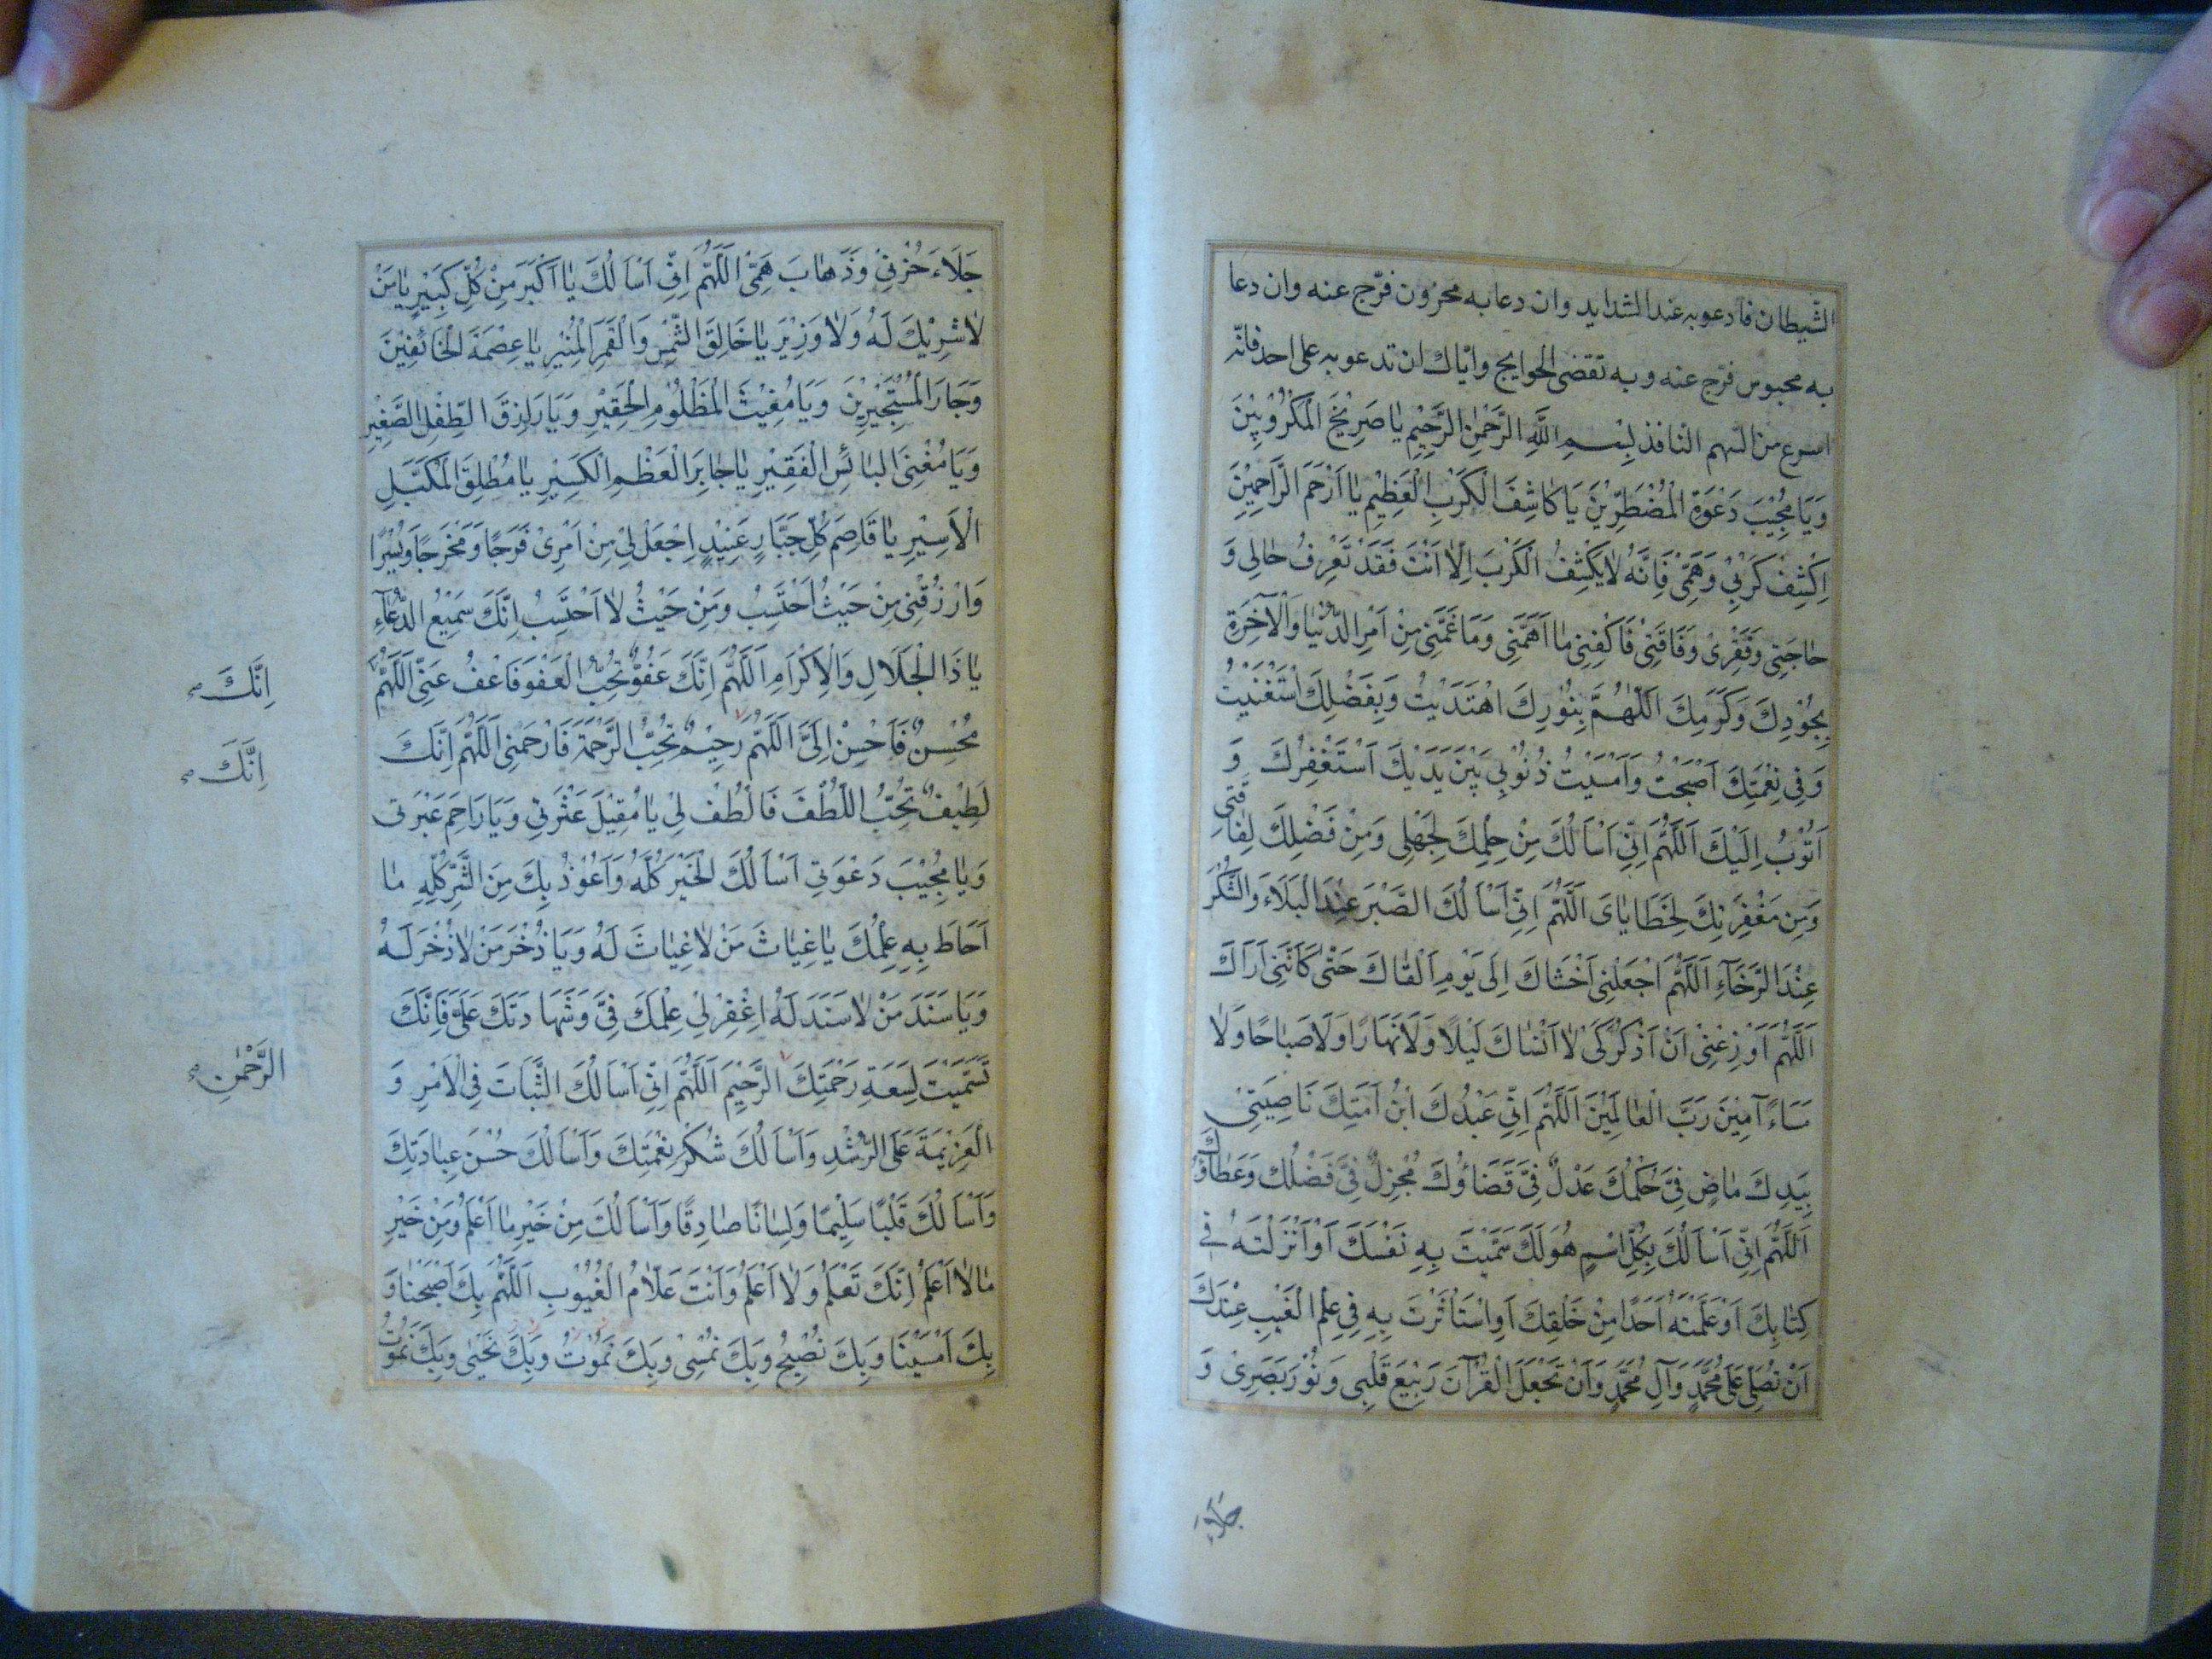 الشيطان فادعو به عند الشدايد وان دعا به محزون فرّج عنه وان دعا
به محبوس فرّج عنه و به تقضى الحوايج وايّاك ان تدعو به على احد فانّه
اسرع من السهم النافذ بِسْمِ اللّٰهِ الرَّحْمٰنِ الرَّحِيْمِ يٰا صَرِيْخَ الْمَكْرُوْبِيْنَ
وَيَا مُجِيْبَ دَعْوَةِ الْمُضْطَرِّيْنَ يَا كٰاشِفَ الْكَرْبِ الْعَظِيْمِ يٰا اَرْحَمَ الرَّاحِمِيْنَ
اِكْشِفْ كَرْبِيْ وَهَمِّيْ فَاِنَّهُ لٰا يَكْشِفُ الْكَرْبَ اِلّٰا اَنْتَ فَقَدْ تَعْرِفُ حٰالِي وَ
حٰاجَتِي وَفَقْرِيْ وَفَاقَتِيْ فَاكْفِنِيْ مٰا اَهَمَّنِي وَمَا غَمَّنِي مِنْ اَمْرِ الدُّنْيٰا وَالْآخِرَةِ
بِجُوْدِكَ وَكَرَمِكَ اَللّٰهُمَّ بِنُوْرِكَ اهْتَدَيْتُ وَبِفَضْلِكَ اسْتَغْنَيْتُ
وَفِي نِعْمَتِكَ اَصْبَحْتُ وَاَمْسَيْتُ ذُنُوْبِي بَيْنَ يَدَيْكَ اَسْتَغْفِرُكَ وَ
اَتُوْبُ اِلَيْكَ اَللّٰهُمَّ اِنِّي اَسْاَلُكَ مِنْ حِلْمِكَ لِجَهْلِي وَمِنْ فَضْلِكَ لِفٰاقَتِي
وَمِن مَغْفِرَتِكَ لِخَطَايٰايَ اَللّٰهُمَّ اِنِّي اَسْاَلُكَ الصَّبْرَ عِنْدَ الْبَلَاءِ وَالشُّكْرَ
عِنْدَ الرَّخَآءِ اَللّٰهُمَّ اجْعَلْنِي اَخْشٰاكَ اِلَى يَوْمِ اَلْقٰاكَ حَتّٰى كَاَنَّنِي اَرَاكَ
اَللّٰهُمَّ اَوْزِعْنِيْ اَنْ اَذْكُرَكَ كَيْ لٰا اَنْسٰاكَ لَيْلًا وَلَا نَهَارًا وَلَا صَبٰاحًا وَلٰا
مَسَاءً آمِيْنَ رَبَّ الْعٰالَمِيْنَ اَللّٰهُمَّ اِنِّي عَبْدُكَ ابْنُ اَمَتِكَ نَاصِيَتِيْ
بِيَدِكَ مٰاضٍ فِيَّ حُكْمُكَ عَدْلٌ فِيَّ قَضَاؤُكَ مُجْزِلٌ فِيَّ فَضْلُكَ وَعَطٰاؤُكَ
اَللّٰهُمَّ اِنِّي اَسْاَلُكَ بِكُلِّ اسْمٍ هُوَ لَكَ سَمَّيْتَ بِهِ نَفْسَكَ اَوْ اَنْزَلْتَهُ فِي
كِتٰابِكَ اَوْ عَلَّمْتَهُ اَحَدًا مِنْ خَلْقِكَ اَوِ اسْتَاْثَرْتَ بِهِ فِي عِلْمِ الْغَيْبِ عِنْدَكَ
اَنْ تُصَلِّيَ عَلٰى مُحَمَّدٍ وَآلِ مُحَمَّدٍ وَاَنْ تَجْعَلَ الْقُرْآنَ رَبِيْعَ قَلْبِي وَنُوْرَ بَصَرِيْ وَ
جَلَاءَ
جَلَاءَ حُزْنِيْ وَذَهٰابَ هَمِّيْ اَللّٰهُمَّ اِنِّي اَسْاَلُكَ يٰا اَكْبَرَ مِنْ كُلِّ كَبِيْرٍ يٰا مَنْ
لٰا شَرِيْكَ لَهُ وَلٰا وَزِيْرَ يٰا خَالِقَ الشَّمْسِ وَالْقَمَرِ الْمُنِيْرِ يٰا عِصْمَةَ الْخَائِفِيْنَ
وَجَارَ الْمُسْتَجِيْرِيْنَ وَيَا مُغِيْثَ الْمَظْلُوْمِ الْحَقِيْرِ وَيَا رَازِقَ الطِّفْلِ الصَّغِيْرِ
وَيَا مُغْنِيَ الْبٰائِسِ الْفَقِيْرِ يٰا جٰابِرَ الْعَظْمِ الْكَسِيْرِ يٰا مُطْلِقَ الْمُكَبَّلِ
الْاَسِيْرِ يٰا قَاصِمَ كُلِّ جَبَّارٍ عَنِيْدٍ اِجْعَلْ لِيْ مِنْ اَمْرِيْ فَرَجًا وَمَخْرَجًا وَيُسْرًا
وَارْزُقْنِي مِنْ حَيْثُ اَحْتَسِبُ وَمِنْ حَيْثُ لٰا اَحْتَسِبُ اِنَّكَ سَمِيْعُ الدُّعٰآءِ
يٰا ذَا الْجَلَالِ وَالْاِكْرَامِ اَللّٰهُمَّ اِنَّكَ عَفُوٌّ تُحِبُّ الْعَفْوَ فَاعْفُ عَنِّي اَللّٰهُمَّ
اِنَّكَ صح
مُحْسِنٌ فَاَحْسِنْ اِلَيَّ اَللّٰهُمَّ رَحِيْمٌ تُحِبُّ الرَّحْمَةَ فَارْحَمْنِي اَللّٰهُمَّ اِنَّكَ
اِنَّكَ صح
لَطِيْفٌ تُحِبُّ اللُّطْفَ فَالْطُفْ لِيْ يٰا مُقِيْلَ عَثْرَتِي وَيَا رَاحِمَ عَبْرَتي
وَيٰا مُجِيْبَ دَعْوَتِي اَسْاَلُكَ الْخَيْرَ كُلَّهُ وَاَعُوْذُ بِكَ مِنَ الشَّرِّ كُلِّهِ مٰا
اَحَاطَ بِهِ عِلْمُكَ يٰا غِيٰاثَ مَنْ لٰا غِيٰاثَ لَهُ وَيَا ذُخْرَ مَنْ لٰا ذُخْرَ لَهُ
وَيَا سَنَدَ مَنْ لٰا سَنَدَ لَهُ اغْفِرْ لِيْ عِلْمَكَ فِيَّ وَشَهَادَتَكَ عَلَيَّ فَاِنَّكَ
تَسَمَّيْتَ لِسَعَةِ رَحْمَتِكَ الرَّحِيْمَ اَللّٰهُمَّ اِنِّي اَسْاَلُكَ الثَّبَاتَ فِي الْاَمْرِ وَ
الرَّحْمٰنِ صح
الْعَزِيْمَةَ عَلَى الرُّشْدِ وَاَسْاَلُكَ شُكْرَ نِعْمَتِكَ وَاَسْاَلُكَ حُسْنَ عِبٰادَتِكَ
وَاَسْاَلُكَ قَلْبًا سَلِيْمًا وَلِسٰانًا صٰادِقًا وَاَسْاَلُكَ مِنْ خَيْرِ مٰا اَعْلَمُ وَمِنْ خَيْرِ
مٰا لٰا اَعْلَمُ اِنَّكَ تَعْلَمُ وَلٰا اَعْلَمُ وَاَنْتَ عَلَّامُ الْغُيُوْبِ اَللّٰهُمَّ بِكَ اَصْبَحْنٰا وَ
بِكَ اَمْسَيْنَا وَبِكَ نُصْبِحُ وَبِكَ نُمْسِيْ وَبِكَ نَمُوْتُ وَبِكَ نَحْيٰى وَبِكَ نَمُوْتُ